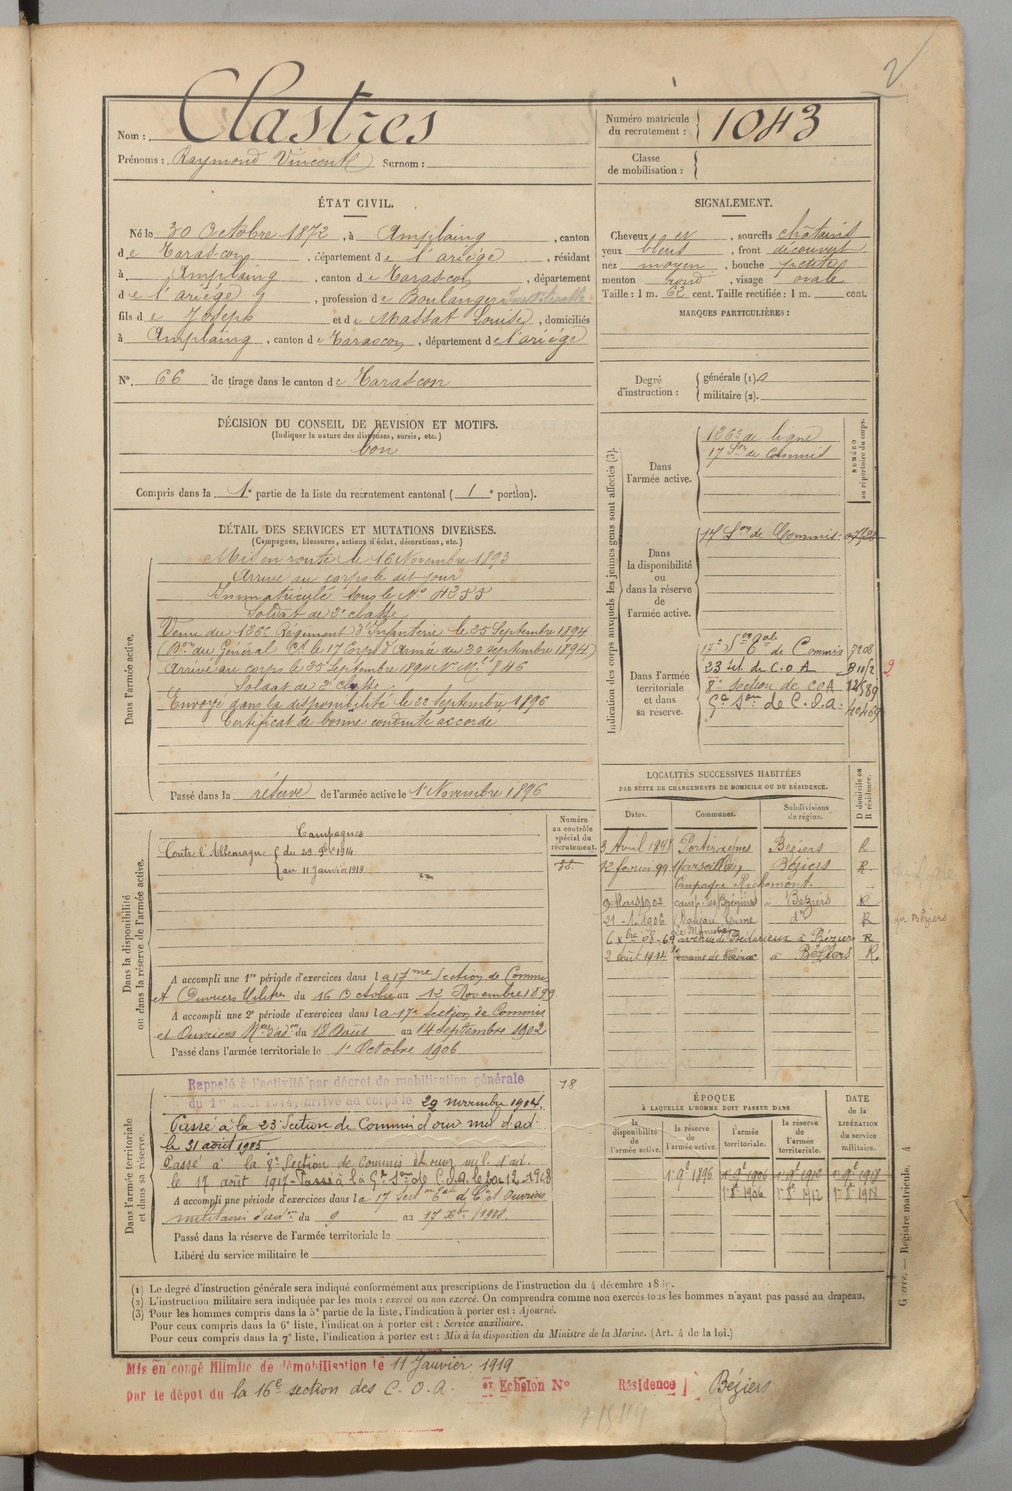 2
Nom : Clastres
Prénoms : Raymond Vincent Surnom :
Numéro matricule du recrutement : 1043
Classe de mobilisation :
ÉTAT CIVIL.
Né le 30 Octobre 1872, à Amplaing, canton
de Tarascon, département de l'ariège, résidant
à Amplaing, canton de Tarascon, département
de l'ariège, profession de Boulanger
fils de Joseph et de Massat Louise, domiciliés
à Amplaing, canton de Tarascon, département de l'ariège
N°. 66 de tirage dans le canton de Tarascon
SIGNALEMENT.
Cheveux et, sourcils châtains
yeux bleus, front découvert
nez moyen, bouche petite
menton rond, visage ovale
Taille : 1 m. 62 cent. Taille rectifiée : 1 m. cent.
MARQUES PARTICULIÈRES :
Degré d'instruction : générale (1).
militaire (2).
DÉCISION DU CONSEIL DE REVISION ET MOTIFS.
(Indiquer la nature des dispenses, sursis, etc.)
bon
Compris dans la 1e partie de la liste du recrutement cantonal ( 1e portion).
DÉTAIL DES SERVICES ET MUTATIONS DIVERSES.
(Campagnes, blessures, actions d'éclat, décorations, etc.)
Dans l'armée active.
Mis en route le 16 Novembre 1893
Arrivé au corps le dit jour
Immatriculé sous le N° 4255
Soldat de 2e classe
Venu du 126e Régiment d'Infanterie le 25 Septembre 1894
(Don du Général Ct. le 17 Corps d'Armée du 20 septembre 1894)
Arrivé au corps le 25 Septembre 1894 N° Mle 846
Soldat de 2e classe
Envoyé dans la disponibilité le 22 Septembre 1896
Certificat de bonne conduite accordé
Passé dans la réserve de l'armée active le 1 Novembre 1896
Indication des corps auxquels les jeunes gens sont affectés (3).
NUMÉRO au répertoire du corps.
Dans l'armée active.
126e de ligne
17 Son de Commis
Dans la disponibilité ou dans la réserve de l'armée active.
17 Son de Commis
Dans l'armée territoriale et dans sa réserve.
17e Son tale de Commis 7208
23 sct de C.O.A
8e section de C.O.A. 12589
5e Son de C.O.A. 40469
LOCALITÉS SUCCESSIVES HABITÉES
PAR SUITE DE CHANGEMENTS DE DOMICILE OU DE RÉSIDENCE.
Dates. Communes. Subdivisions de région. D domicile ou R résidence.
3 Avril 1898 Portiragnes Béziers R
12 février 99 Marseillan Béziers R
Campagne Richemont.
9 Mars 1902 à Béziers R
21-1-1906 do R
avenue de Bédarieux à Béziers R
2 août 1914 à Béziers R.
gn Béziers
Dans la disponibilité ou dans la réserve de l'armée active.
Numéro au contrôle spécial du recrutement.
Campagnes
Contre l'Allemagne du 29 9bre 1914
au 11 Janvier 1919
A accompli une 1re période d'exercices dans la 17me Section de Commis
et Ouvriers Militres du 16 Octobre au 12 Novembre 1899
A accompli une 2e période d'exercices dans la 17e section de Commis
et Ouvriers Mres d'adon du 18 Août au 14 Septembre 1902
Passé dans l'armée territoriale le 1er Octobre 1906
Dans l'armée territoriale et dans sa réserve.
Rappelé à l'activité par décret de mobilisation générale
du 1er Août 1914, arrivé au corps le 29 novembre 1914.
Passé à la 23e Section de Commis d'ouv mil d'ad.
le 31 août 1915
Passé à la 8e Section de Commis et ouv mil. d'ad.
le 17 août 1917
A accompli une période d'exercices dans la 17 Secton tale de Cis et Ouvriers
militaires d'adon du 9 au 17 Xbre 1908.
Passé dans la réserve de l'armée territoriale le
Libéré du service militaire le
ÉPOQUE
À LAQUELLE L'HOMME DOIT PASSER DANS
la disponibilité de l'armée active. la réserve de l'armée active. l'armée territoriale. la réserve de l'armée territoriale.
DATE de la LIBÉRATION du service militaire.
1 9e 1896 1 9e 1906 1 9e 1912 1 9e 1918
1 8e 1906 1 8e 1912 1 8e 1918
Guerre. — Registre matricule. 4
(1) Le degré d'instruction générale sera indiqué conformément aux prescriptions de l'instruction du 4 décembre
(2) L'instruction militaire sera indiquée par les mots : exercé ou non exercé. On comprendra comme non exercés tous les hommes n'ayant pas passé au drapeau.
(3) Pour les hommes compris dans la 5e partie de la liste, l'indication à porter est : Ajourné.
Pour ceux compris dans la 6e liste, l'indication à porter est : Service auxiliaire.
Pour ceux compris dans la 7e liste, l'indication à porter est : Mis à la disposition du Ministre de la Marine. (Art. 4 de la loi.)
Mis en congé illimité de démobilisation le 11 Janvier 1919
par le dépôt du la 16e section des C.O.A. Echelon N° Résidence Béziers